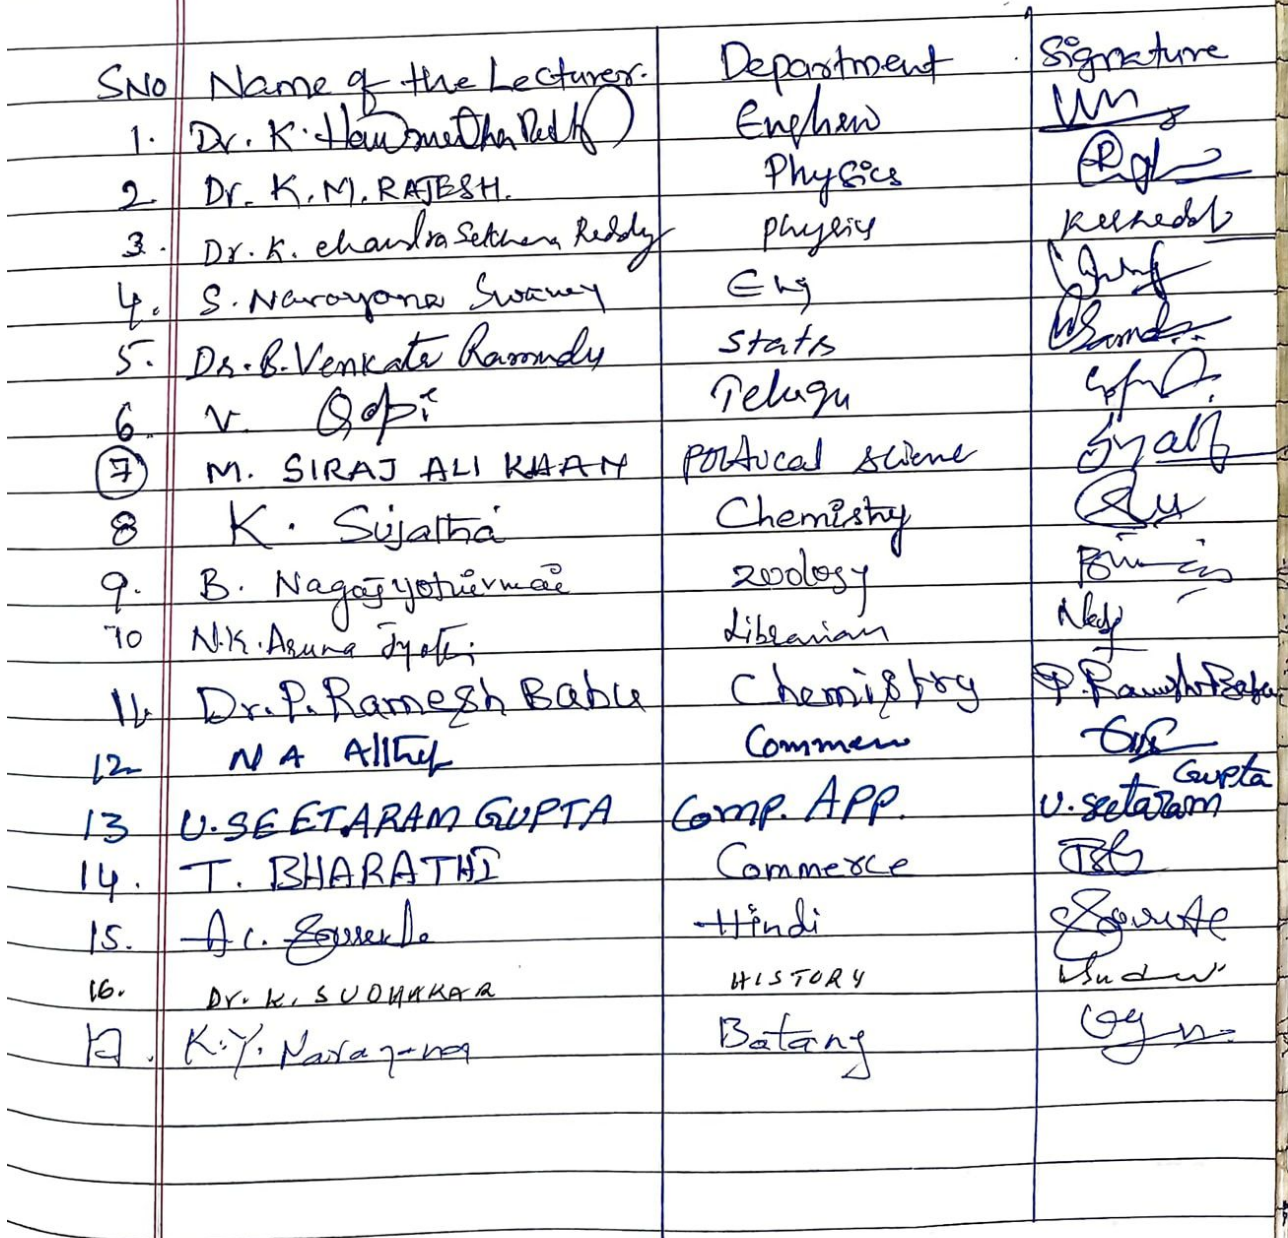 SNO Name of the Lecturer. Department Signature
1. Dr. K. Reddy
2 Dr. K. M. RAJESH. Physics
3. Dr. K. chandra Sekhara Reddy physics
4. S. Narayana Swamy Eng
5. Dr. B. Venkata Ramudu Stats
6. V. Gopi Telugu
7 M. SIRAJ ALI KHAN political science
8 K. Sujatha Chemistry
9. B. Nagajyothirmai zoology
10 N.K. Aruna Jyothi Librarian
11. Dr. P. Ramesh Babu Chemistry P. Ramesh Babu
12 N A Commerce
Gupta
13 U. SEETARAM GUPTA Comp. APP. U. seetaram
14. T. BHARATHI Commerce
15. A C. Hindi
16. Dr. K. SUDHAKAR HISTORY
17. K. Y. Narayana Botany